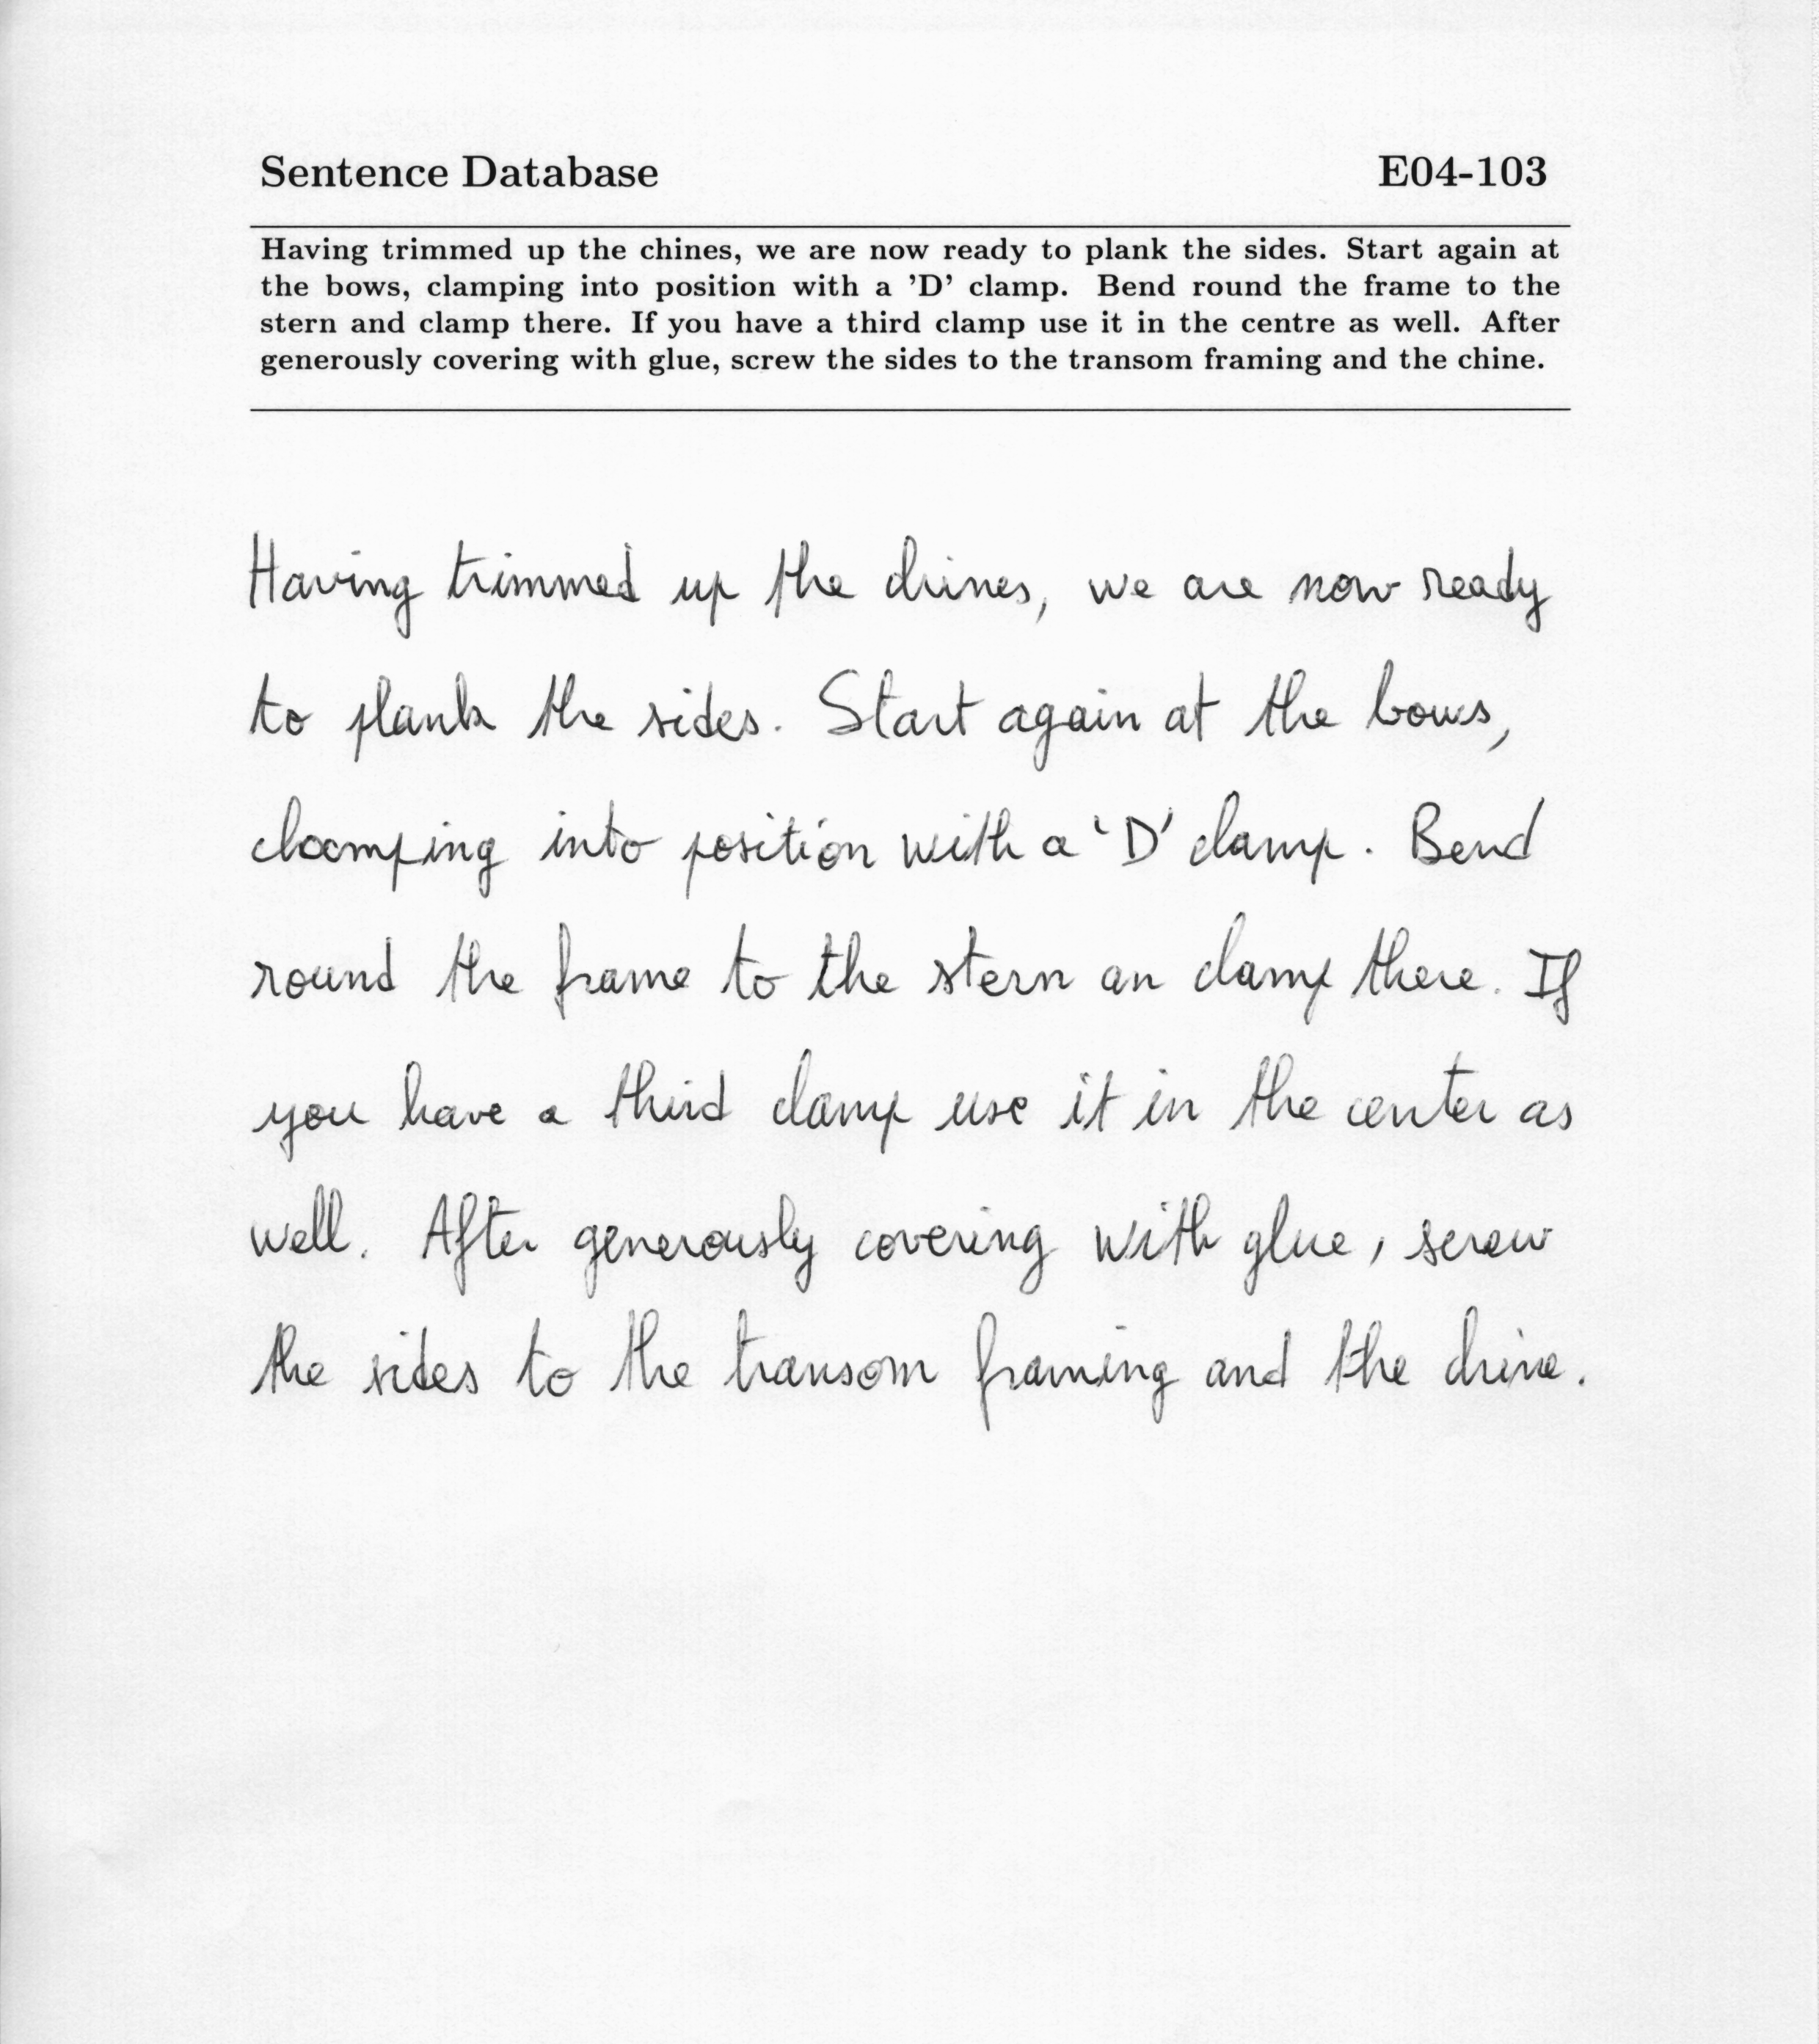 Sentence Database E04-103
Having trimmed up the chines, we are now ready to plank the sides. Start again at
the bows, clamping into position with a 'D' clamp. Bend round the frame to the
stern and clamp there. If you have a third clamp use it in the centre as well. After
generously covering with glue, screw the sides to the transom framing and the chine.
Having trimmed up the chines, we are now ready
to plank the sides. Start again at the bows,
clamping into position with a 'D' clamp. Bend
round the frame to the stern an clamp there. If
you have a third clamp use it in the center as
well. After generously covering with glue, screw
the sides to the transom framing and the chine.